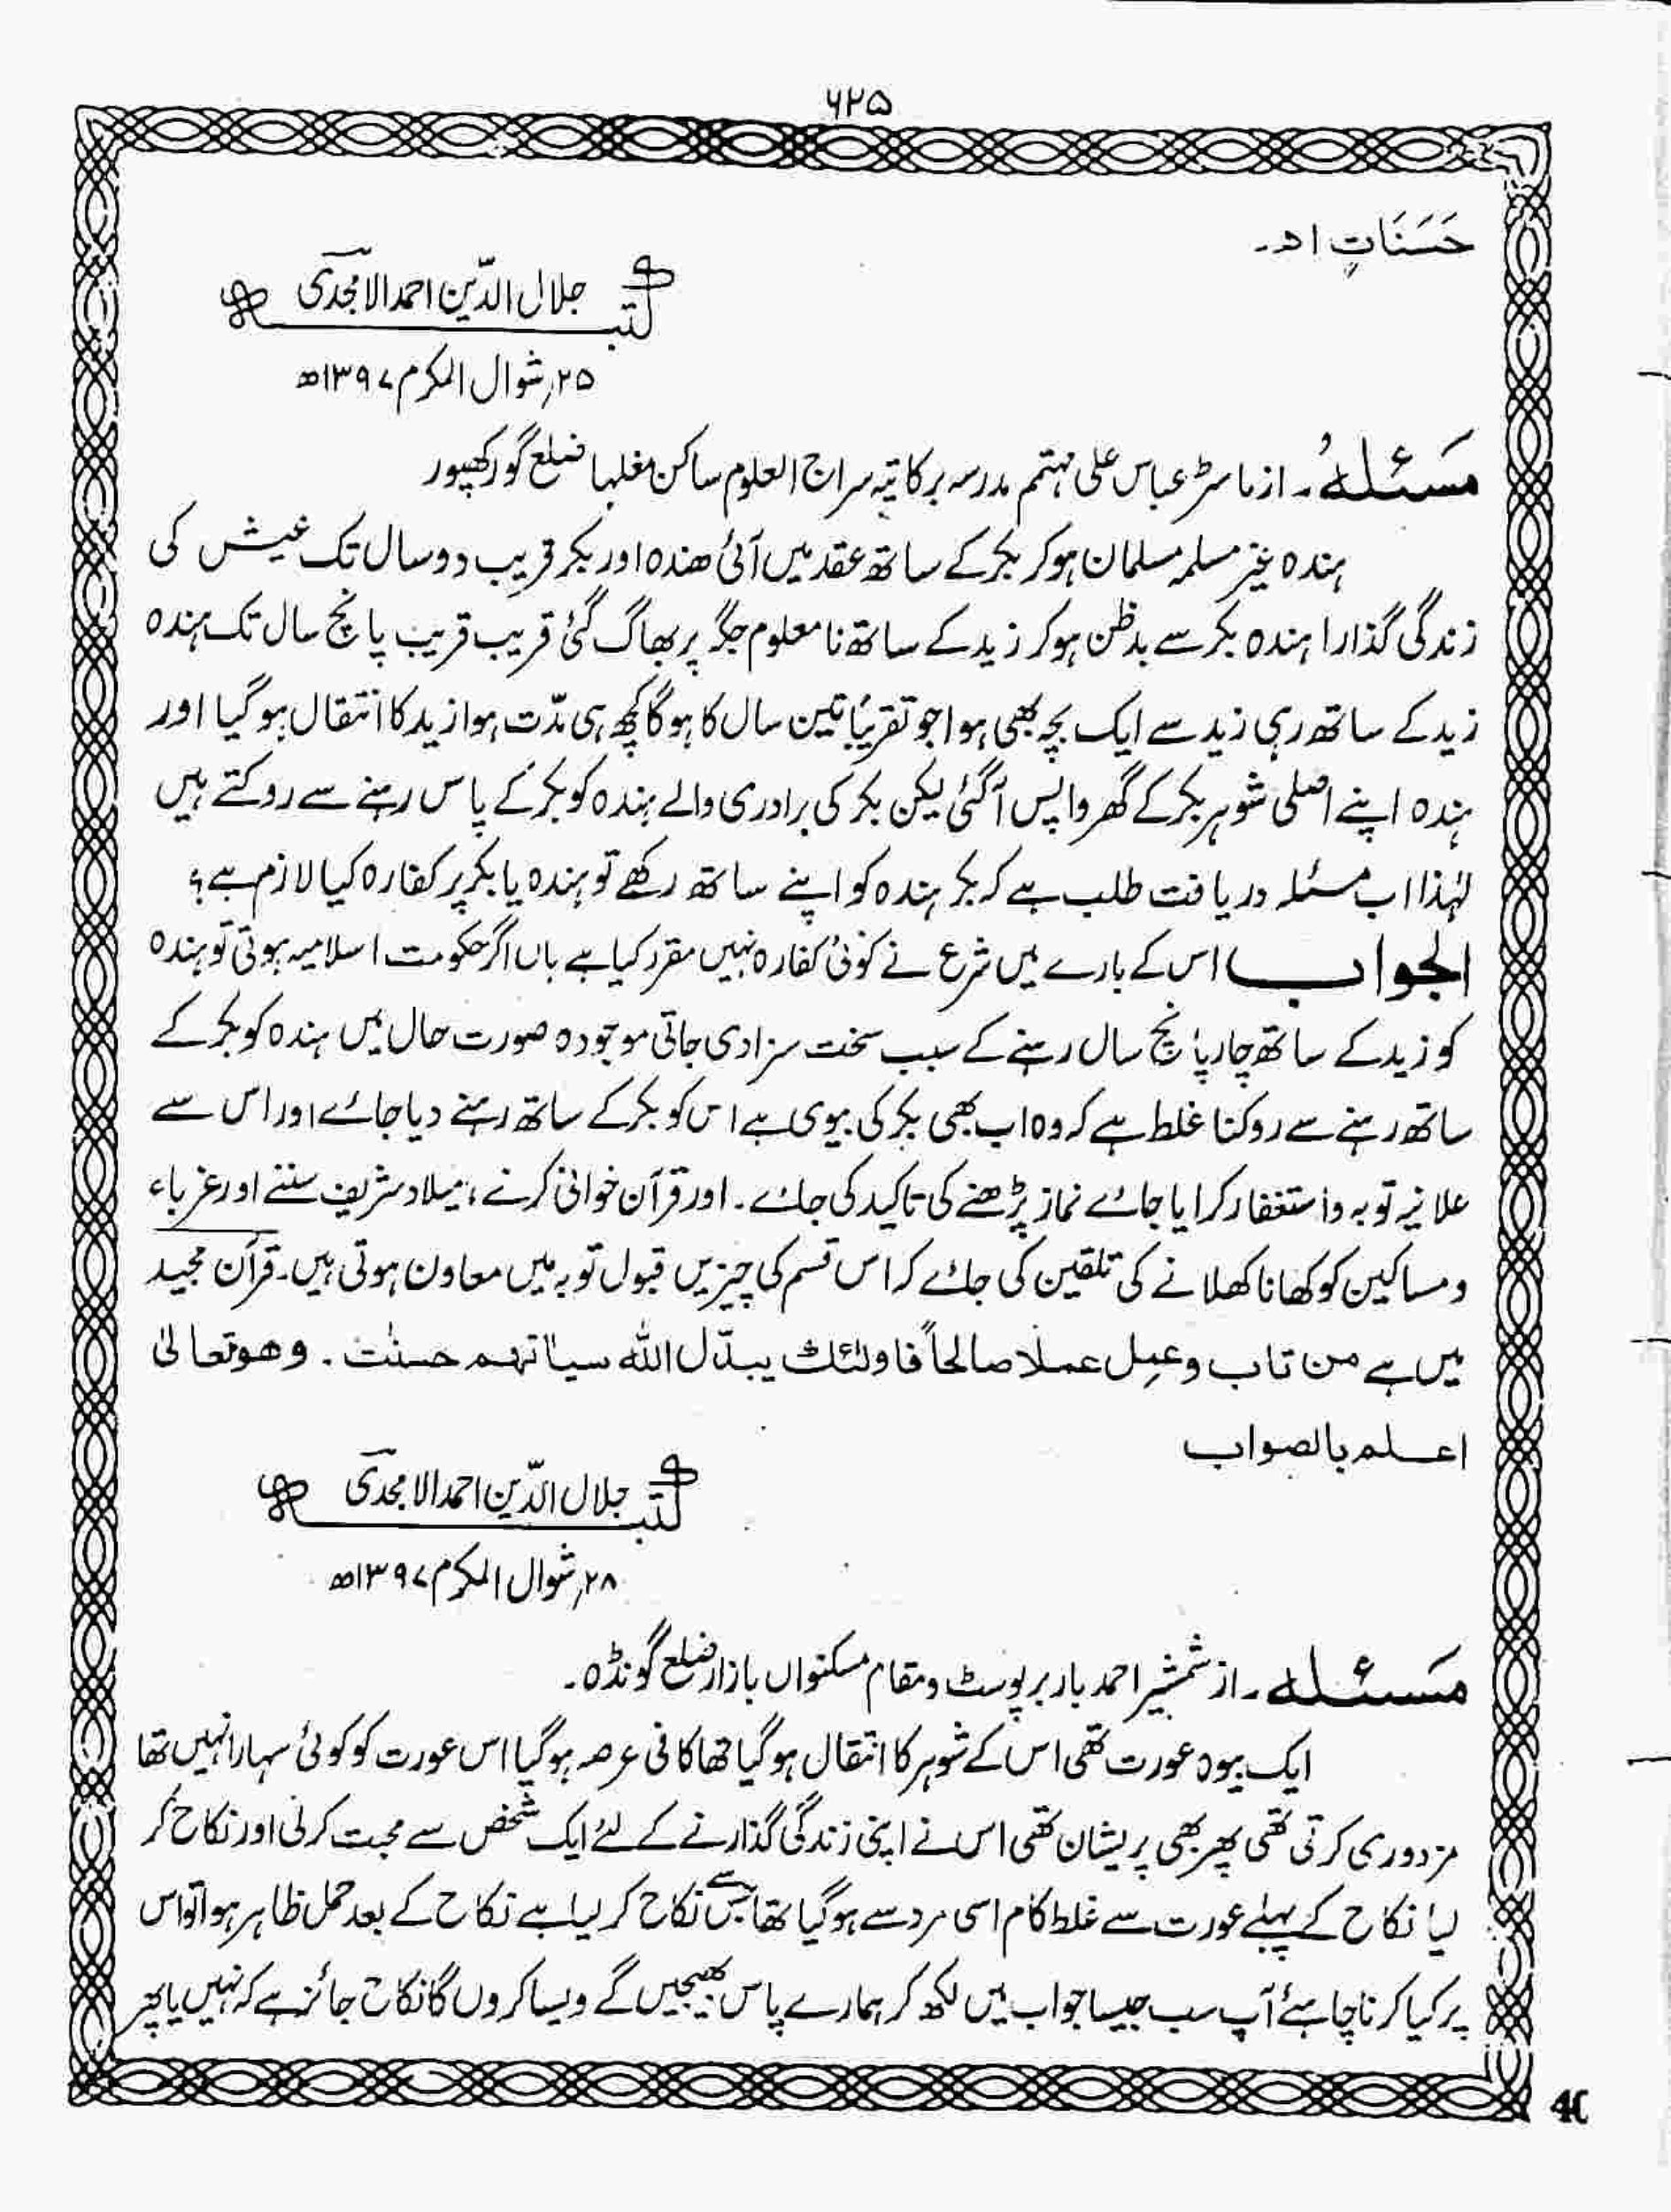 ۶۲۵
حَسَنَاتٍ اھ۔
کتبہ جلال الدّین احمد الامجدی
۲۵؍شوال المکرم ۱۳۹۷ھ
مَسْئَلَہُ۔ از ماسٹر عباس علی مہتمم مدرسہ برکاتیہ سراج العلوم ساکن مغلہا ضلع گورکھپور
ہندہ غیر مسلمہ مسلمان ہوکر بکر کے ساتھ عقد میں آئی ھندہ اور بکر قریب دوسال تک عیش کی
زندگی گذارا ہندہ بکر سے بدظن ہوکر زید کے ساتھ نامعلوم جگہ پر بھاگ گئی قریب قریب پانچ سال تک ہندہ
زید کے ساتھ رہی زید سے ایک بچہ بھی ہوا جو تقریبًا تین سال کا ہوگا کچھ ہی مدّت ہوا زید کا انتقال ہوگیا اور
ہندہ اپنے اصلی شوہر بکر کے گھر واپس آگئی لیکن بکر کی برادری والے ہندہ کو بکر کے پاس رہنے سے روکتے ہیں
لہٰذا اب مسئلہ دریافت طلب ہے کہ بکر ہندہ کو اپنے ساتھ رکھے تو ہندہ یا بکر پر کفارہ کیا لازم ہے؟
الجواب اس کے بارے میں شرع نے کوئی کفارہ نہیں مقرر کیا ہے ہاں اگر حکومت اسلامیہ ہوتی تو ہندہ
کو زید کے ساتھ چار پانچ سال رہنے کے سبب سخت سزا دی جاتی موجودہ صورت حال میں ہندہ کو بکر کے
ساتھ رہنے سے روکنا غلط ہے کہ وہ اب بھی بکر کی بیوی ہے اس کو بکر کے ساتھ رہنے دیا جائے اور اس سے
علانیہ توبہ و استغفار کرایا جائے نماز پڑھنے کی تاکید کی جائے۔ اور قرآن خوانی کرنے، میلاد شریف سننے اور غرباء
و مساکین کو کھانا کھلانے کی تلقین کی جائے کہ اس قسم کی چیزیں قبول توبہ میں معاون ہوتی ہیں۔ قرآن مجید
میں ہے من تاب وعمِل عملا صالحاً فاولٰئك یبدّل اللہ سیاٰتهم حسنٰت۔ وھو تعالیٰ
اعلم بالصواب
کتبہ جلال الدّین احمد الامجدی
۲۸؍شوال المکرم ۱۳۹۷ھ
مَسْئَلہ۔ از شمشیر احمد باربر پوسٹ و مقام مسکنواں بازار ضلع گونڈہ۔
ایک بیوہ عورت تھی اس کے شوہر کا انتقال ہوگیا تھا کافی عرصہ ہوگیا اس عورت کو کوئی سہارا نہیں تھا
مزدوری کرتی تھی پھر بھی پریشان تھی اس نے اپنی زندگی گذارنے کے لئے ایک شخص سے محبت کرلی اور نکاح کر
لیا نکاح کے پہلے عورت سے غلط کام اسی مرد سے ہوگیا تھا جس سے نکاح کر لیا ہے نکاح کے بعد حمل ظاہر ہوا تو اس
پر کیا کرنا چاہئے آپ سب جیسا جواب میں لکھ کر ہمارے پاس بھیجیں گے ویسا کروں گا نکاح جائز ہے کہ نہیں یا پھر